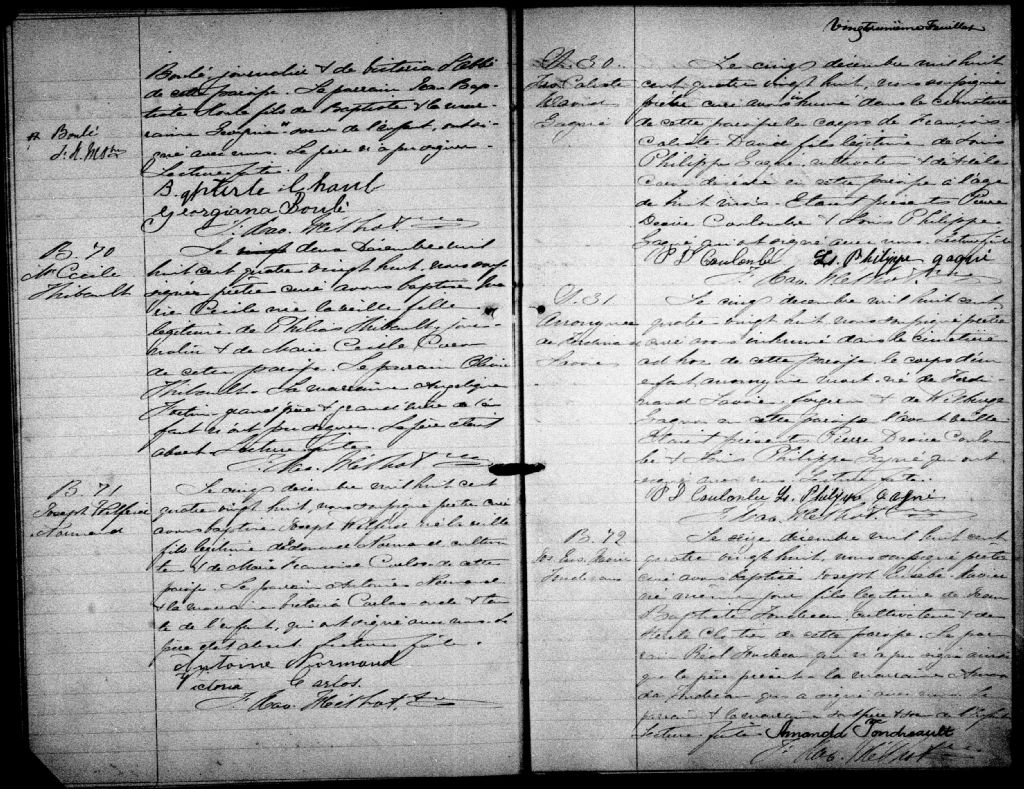 Boulé, journalier & de Victoria
de cette paroisse. Le parrain Jean Bap-
tiste fils de Baptiste & la mar-
raine Georgina sœur de l'enfant, ont si-
gné avec nous. Le père n'a pu signer.
Lecture faite.
Georgiana Boulé
F. Xav. Méthot. Ptre
# Boulé
B. 70
Mie Cécile
Thibault
Le Décembre mil
huit cent quatre vingt huit, nous sous-
signés prêtre curé avons baptisé Ma-
rie Cécile née la veille fille
légitime de Philias Thibault, jour-
nalier & de Marie Cécile Caron
de cette paroisse. Le parrain
Thibault. La marraine Angélique
Fortin, grand père & grand'mère de l'en-
fant n'ont pu signer. Le père était
absent. Lecture faite.
F. Xav. Méthot. Ptre
B. 71
Joseph Wilfrid
Normand
Le cinq décembre mil huit cent
quatre vingt huit, nous soussigné prêtre curé
avons baptisé Joseph Wilfrid né la veille
fils légitime d'Edouard Normand cultiva-
teur & de Marie Françoise Carlos de cette
paroisse. Le parrain Antoine Normand
& la marraine Victoria Carlos oncle & tan-
te de l'enfant, qui ont signé avec nous. Le
père était absent. Lecture faite.
Antoine Normand
Victoria Carlos
F. Xav. Méthot. Ptre
Vingt unième Feuillet
S. 30
Frs Caliste
David
Gagné
Le cinq décembre mil huit
cent quatre vingt huit, nous soussigné
prêtre curé avons inhumé dans le cimetière
de cette paroisse le corps de François
Caliste David fils légitime de Louis
Philippe Gagné, cultivateur & de
Caron décédé en cette paroisse à l'âge
de huit mois. Etaient présents Pierre
Désiré Coulombe & Louis Philippe
Gagné qui ont signé avec nous. Lecture faite
P D Coulombe Ls. Philippe gagné
F. Xav. Méthot. Ptre
S. 31
Anonyme
de Ferdinand
Savoie
Le cinq décembre mil huit cent
quatre vingt huit, nous soussigné prêtre
curé avons inhumé dans le cimetière
ad hoc de cette paroisse le corps d'un
enfant anonyme mort-né de Ferdi-
nand Savoie, & de
Gagnon de cette paroisse l'avant veille
Etaient présents Pierre Désiré Coulom-
be & Louis Philippe Gagné qui ont
signé avec nous. Lecture faite.
P D Coulombe Ls. Philippe gagné
F. Xav. Méthot. Ptre
B. 72
Jos. Eus. Xavier
Le seize décembre mil huit cent
quatre vingt huit, nous soussigné prêtre
curé avons baptisé Joseph Eusèbe Xavier
né même jour fils légitime de Jean
Baptiste Fondreau, cultivateur & de
Cloutier de cette paroisse. Le par-
rain Réal qui n'a pu signer ainsi
que le père présent & la marraine Aman-
da qui a signé avec nous. Le
parrain & la marraine frère & sœur de l'enfant
Lecture faite Amanda Fondreault
F. Xav. Méthot Ptre